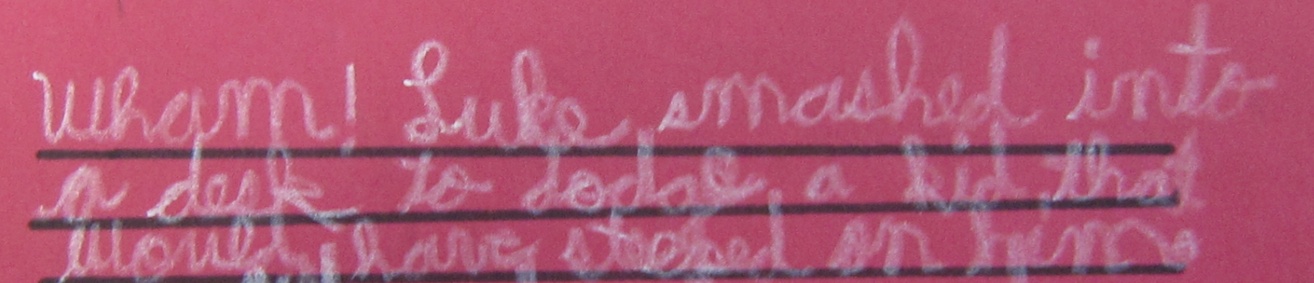 Wham! Luke smashed into
a desk to dodge a kid that
would have stepped on him.